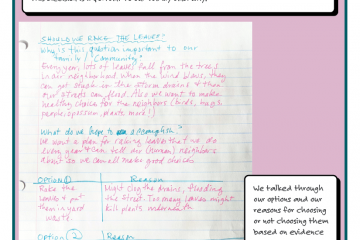 SHOULD WE RAKE THE LEAVES?
Why is this question important to our
family/"Community"
Every year, lots of leaves fall from the trees
in our neighborhood when the wind blows, they
can get stuck in the storm drains & then
our streets can flood. Also we want to make
healthy choice for the neighbors (birds, bugs,
people, opossum, plants more!)
What do we hope to accomplish?
We want a plan for raking leaves that we do
every year & can tell our (human) neighbors
about so we can all make good choices
Option ① Reason
Rake the
leaves & put
them in yard
waste.
Might clog the drains, flooding
the street. Too many leaves might
kill plants underneath
Option ② Reason
We talked through
our options and our
reasons for choosing
or not choosing them
based on evidence